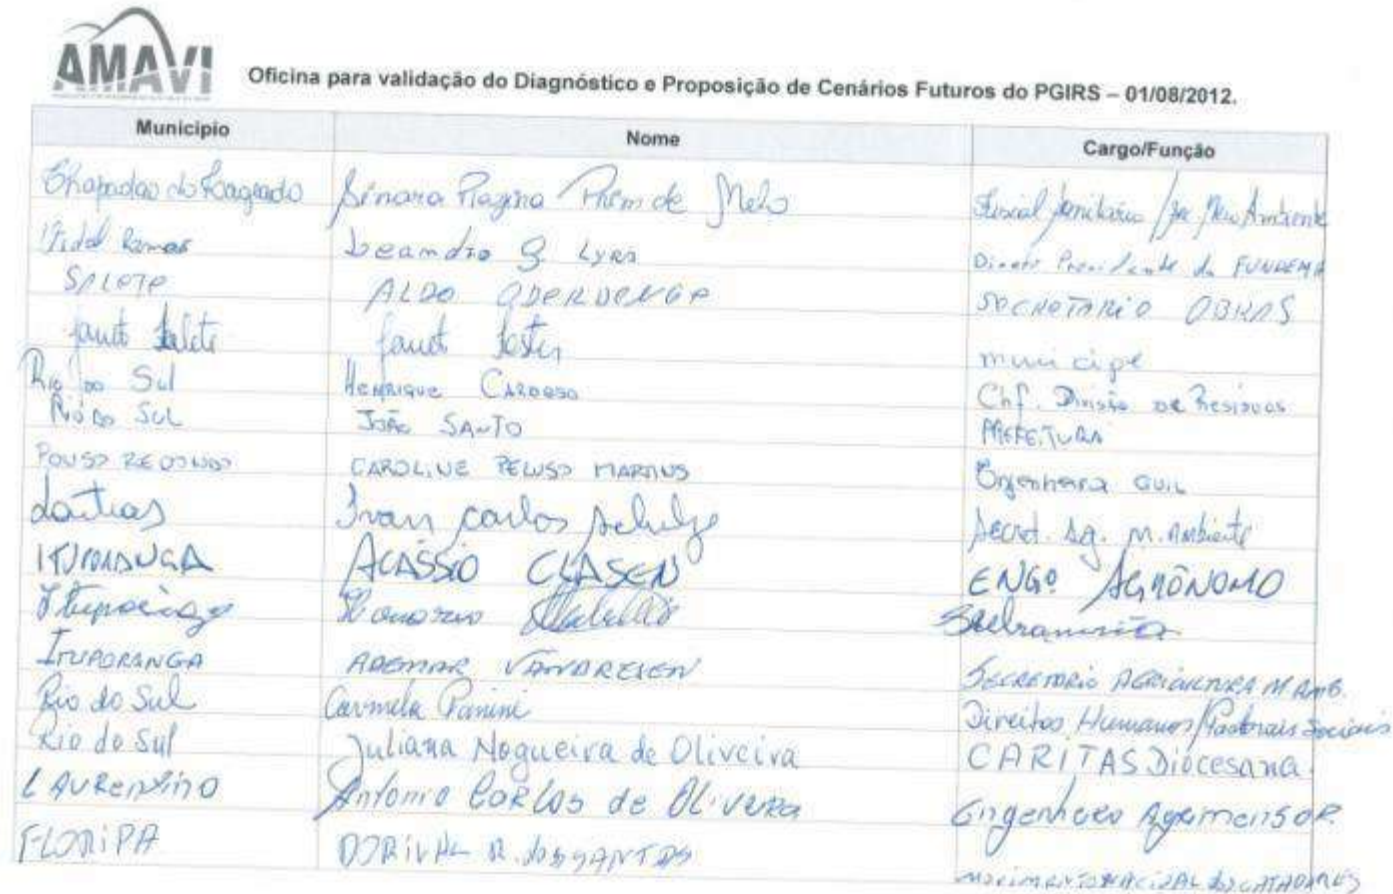 AMAVI
Oficina para validação do Diagnóstico e Proposição de Cenários Futuros do PGIRS – 01/08/2012.
Município Nome Cargo/Função
Chapadão do Lageado Sinara Regina de Melo Fiscal Sanitária / Meio Ambiente
Vidal Ramos Leandro G. Lyra Diretor Presidente da FUNDEMA
SALETE ALDO SECRETARIO OBRAS
Salete municipe
Rio do Sul HENRIQUE CARDOSO Chf. Divisão DE Resíduos
Rio do Sul JOÃO SANTO PREFEITURA
POUSO REDONDO CAROLINE PELUSO MARTINS Engenheira CIVIL
Ivan carlos Schulze Secret. Ag. M. Ambiente
ITUPORANGA ACÁSSIO CLASEN ENGº AGRÔNOMO
Ituporanga
ITUPORANGA ADEMAR VANDRESEN SECRETARIO AGRICULTURA M AMB.
Rio do Sul Carmela Panini Direitos Humanos/Pastorais Sociais
Rio do Sul Juliana Nogueira de Oliveira CARITAS Diocesana.
LAURENTINO Antonio CARLOS de OLIVEIRA Engenheiro Agrimensor
FLORIPA DORIVAL R. dos SANTOS MOVIMENTO NACIONAL dos CATADORES